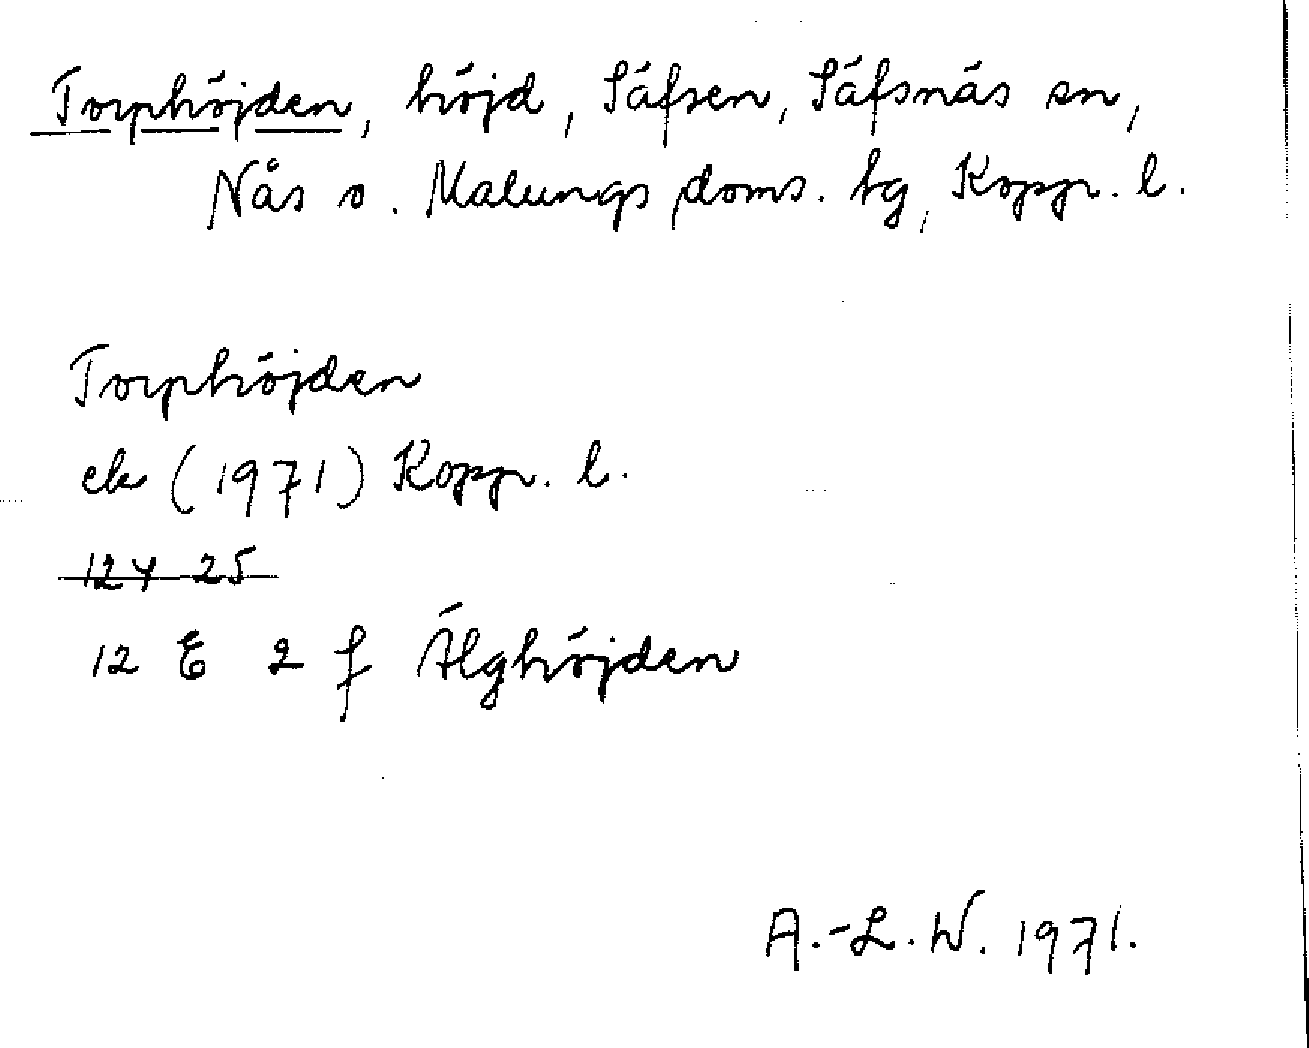 Torphöjden, höjd, Säfsen, Säfsnäs sn,
Nås o. Malungs doms. hg, Kopp. l.
Torphöjden
ek (1971) Kopp. l.
12 Y 25
12 E 2 f Älghöjden
A.-L. W. 1971.